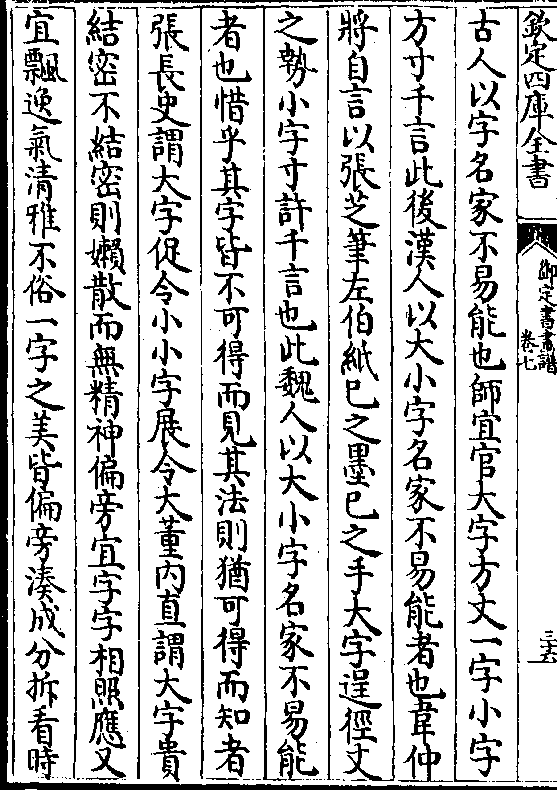 欽定四庫全書
御定書畫譜
卷七
三六
古人以字名家不易能也師宜官大字方丈一字小字
方寸千言此後漢人以大小字名家不易能者也韋仲
將自言以張芝筆左伯紙巳之墨巳之手大字逞徑丈
之勢小字寸許千言也此魏人以大小字名家不易能
者也惜乎其字皆不可得而見其法則猶可得而知者
張長史謂大字促令小小字展令大董内直謂大字貴
結密不結密則嬾散而無精神偏旁宜字字相照應又
宜飄逸氣清雅不俗一字之美皆偏旁湊成分拆看時